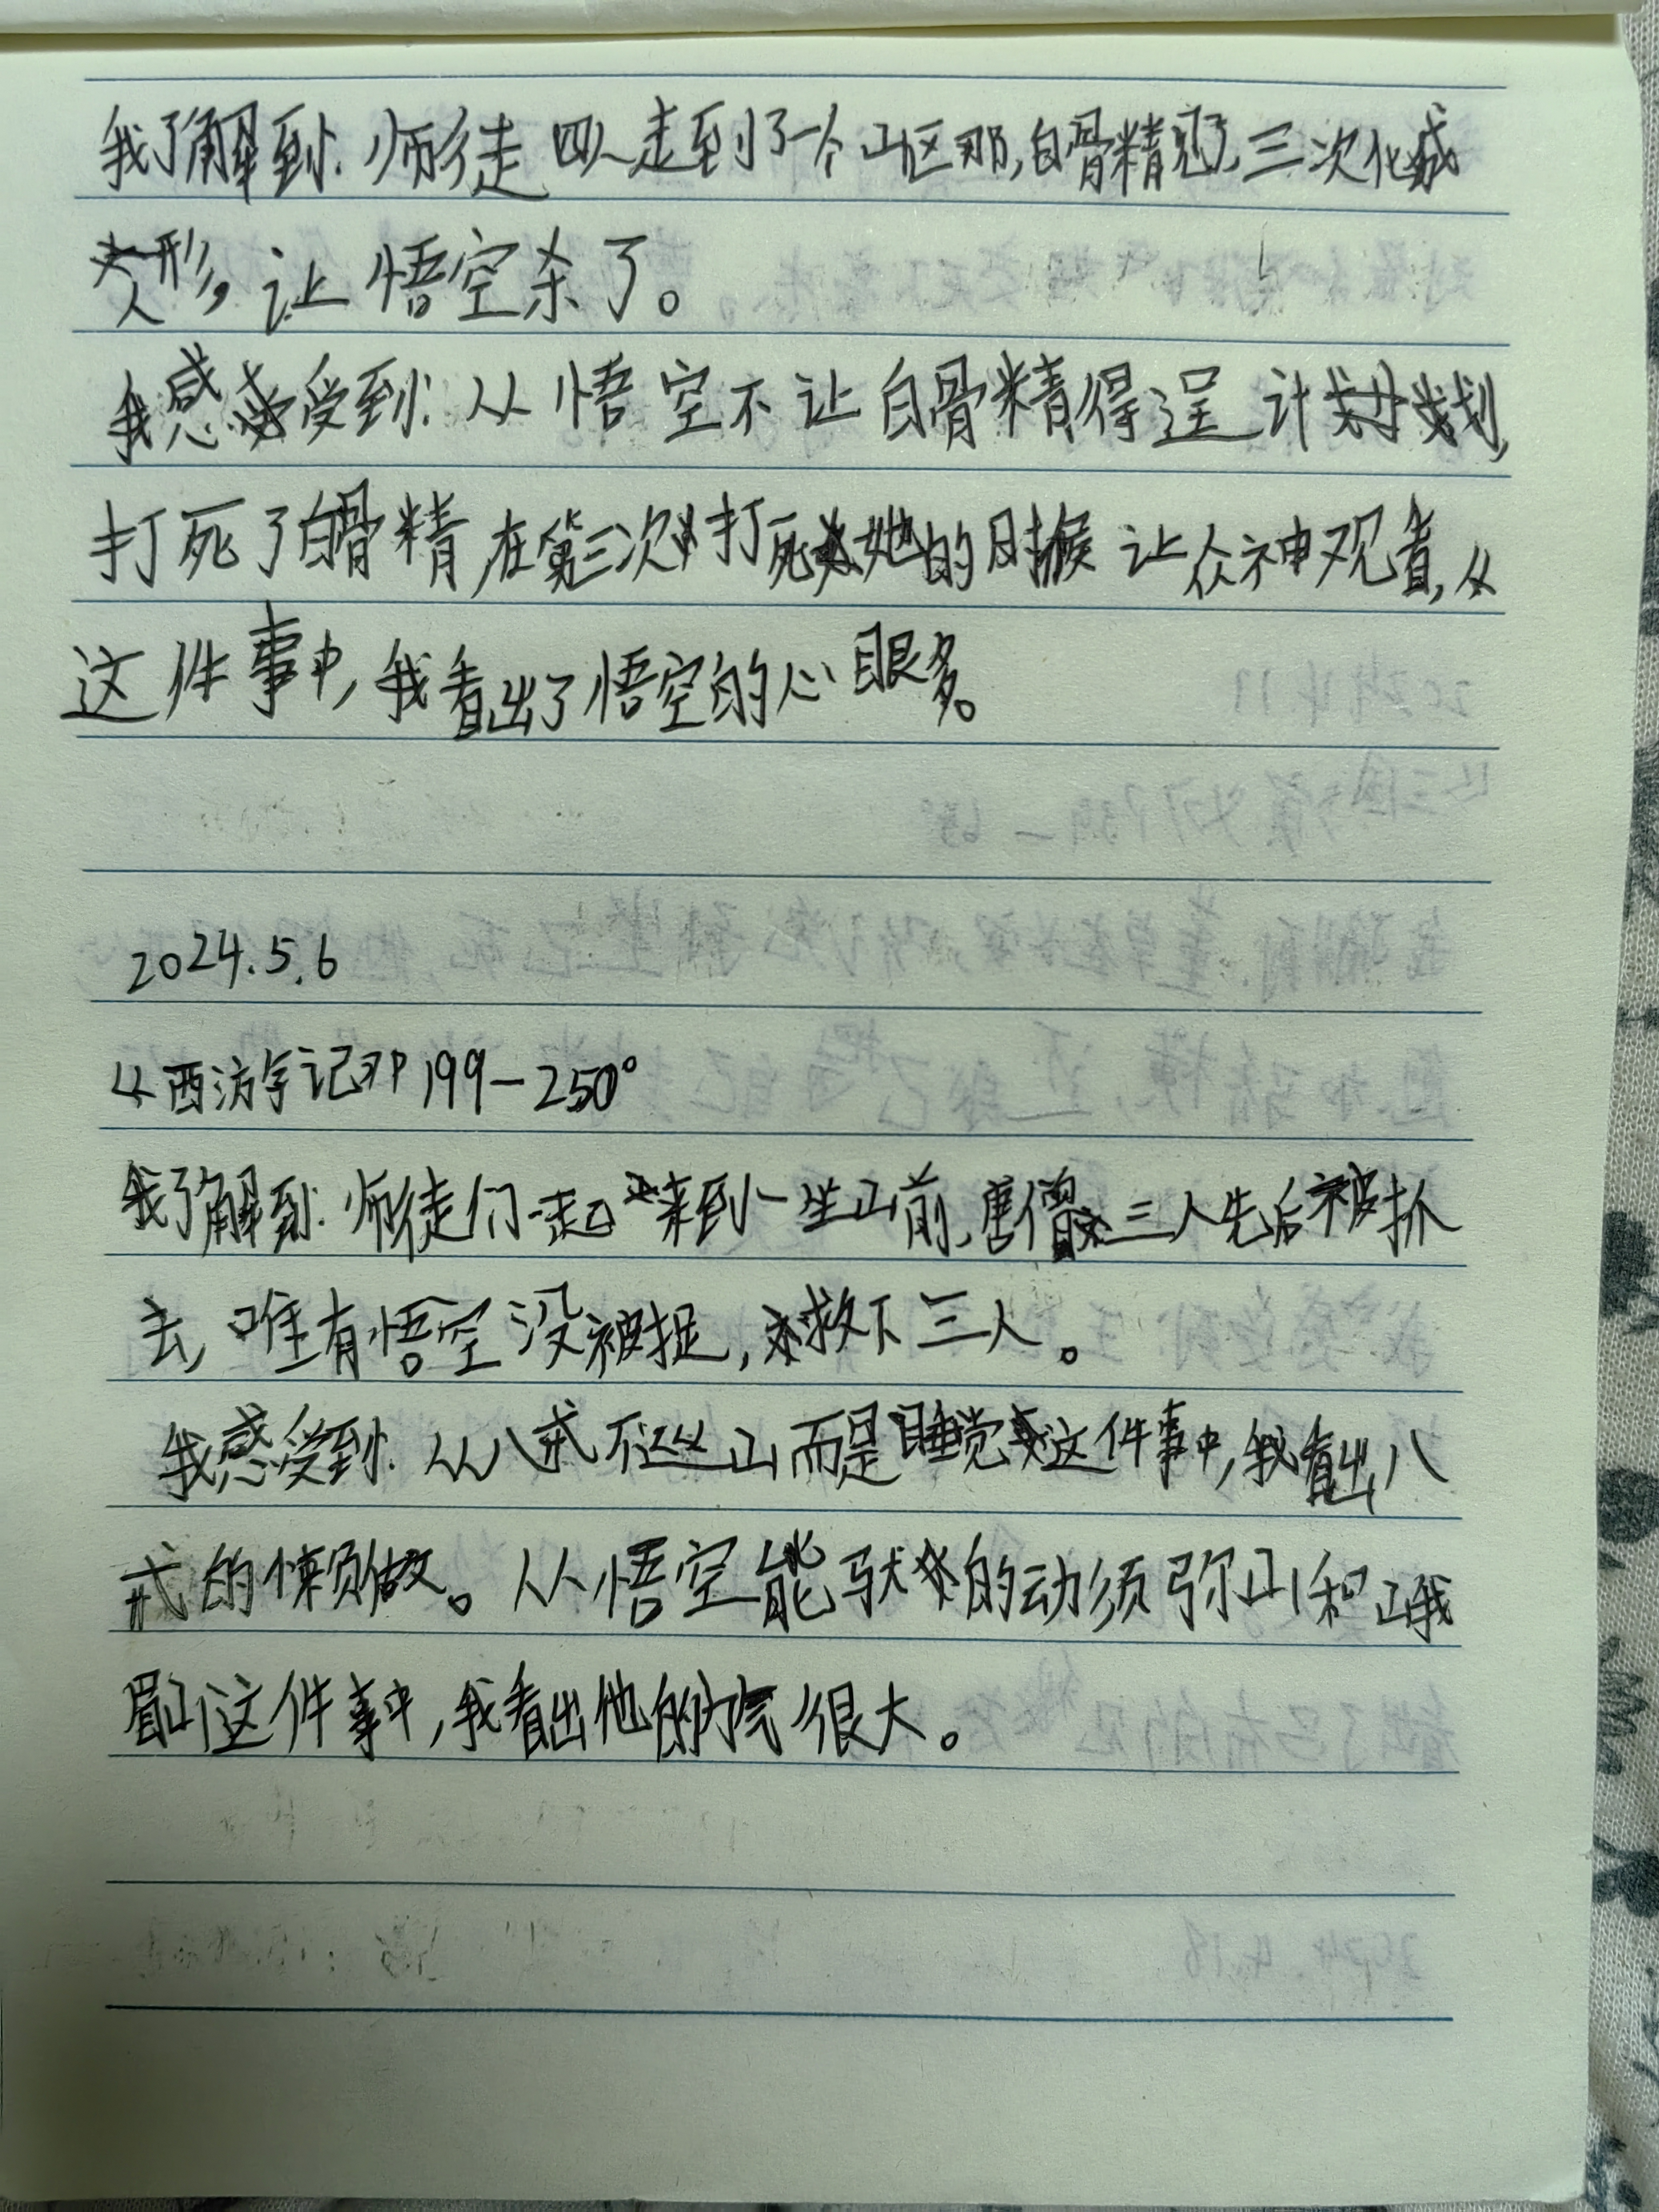 我了解到:师徒四人走到了一个山区那,白骨精三次化成
人形,让悟空杀了。
我感受到:从悟空不让白骨精得逞计划,
打死了白骨精,在第三次打死她的时候让众神观看,从
这件事中,我看出了悟空的心眼多。
2024.5.6
从西游记 199-250°
我了解到:师徒们一起来到一坐山前,唐僧三人先后被抓
去,唯有悟空没被捉,救下三人。
我感受到:从八戒不巡山而是睡觉这件事中,我看出八
戒的懒做。从悟空能驮的动须弥山和峨
眉山这件事中,我看出他的很大。